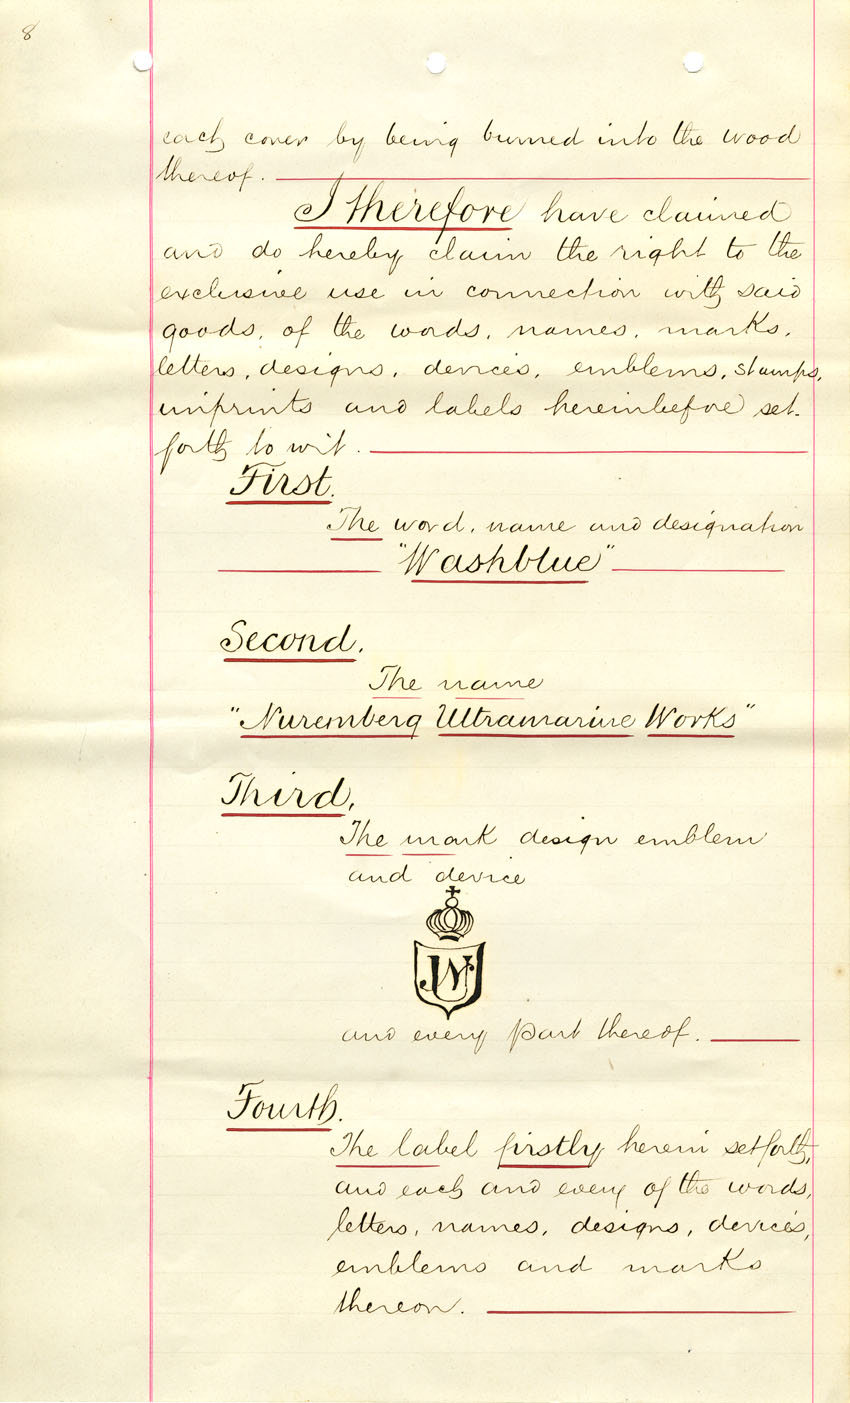 8
each cover by being burned into the wood
thereof.
I therefore have claimed
and do hereby claim the right to the
exclusive use in connection with said
goods, of the words, names, marks,
letters, designs, devices, emblems, stamps,
imprints and labels hereinbefore set-
forth to wit.
First.
The word, name and designation
"Washblue"
Second.
The name
"Nuremberg Ultramarine Works"
Third,
The mark design emblem
and device
and every part thereof.
Fourth.
The label firstly herein setforth,
and each and every of the words,
letters, names, designs, devices,
emblems and marks
thereon.